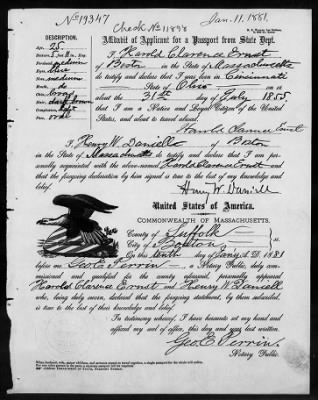 No 19347
Check No 11898
Jan. 11. 1881.
DESCRIPTION.
Affidavit of Applicant for a Passport from State Dept.
Age, 25.
I, Harold Clarence Ernst
of Boston in the State of Massachusetts
do testify and declare that I was born in Cincinnati
State of Ohio on or
about the 31st day of July 1855
that I am a Native and Loyal Citizen of the United
States, and about to travel abroad.
Harold Clarence Ernst
I, Henry W. Daniell of Boston
in the State of Massachusetts do testify and declare that I am per-
sonally acquainted with the above-named Harold Clarence Ernst and
that the foregoing declaration by him signed is true to the best of my knowledge and
belief.
Henry W. Daniell
United States of America.
COMMONWEALTH OF MASSACHUSETTS.
County of Suffolk
City of Boston
On this tenth day of Jan'y A.D. 1881
before me Geo. C. Perrin a Notary Public, duly com-
missioned and qualified as aforesaid, personally appeared
Harold Clarence Ernst and Henry W. Daniell
who, being duly sworn, declared the foregoing statement, by them subscribed,
is true to the best of their knowledge and belief.
In testimony whereof, I have hereunto set my hand and
affixed my seal of office, this day and year last written.
Geo. C. Perrin
Notary Public.